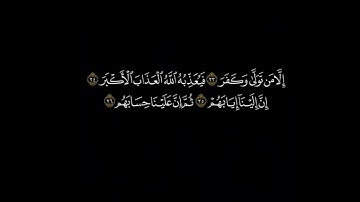 إِلَّا مَن تَوَلَّىٰ وَكَفَرَ ۝٢٣ فَيُعَذِّبُهُ ٱللَّهُ ٱلْعَذَابَ ٱلْأَكْبَرَ ۝٢٤
إِنَّ إِلَيْنَآ إِيَابَهُمْ ۝٢٥ ثُمَّ إِنَّ عَلَيْنَا حِسَابَهُم ۝٢٦